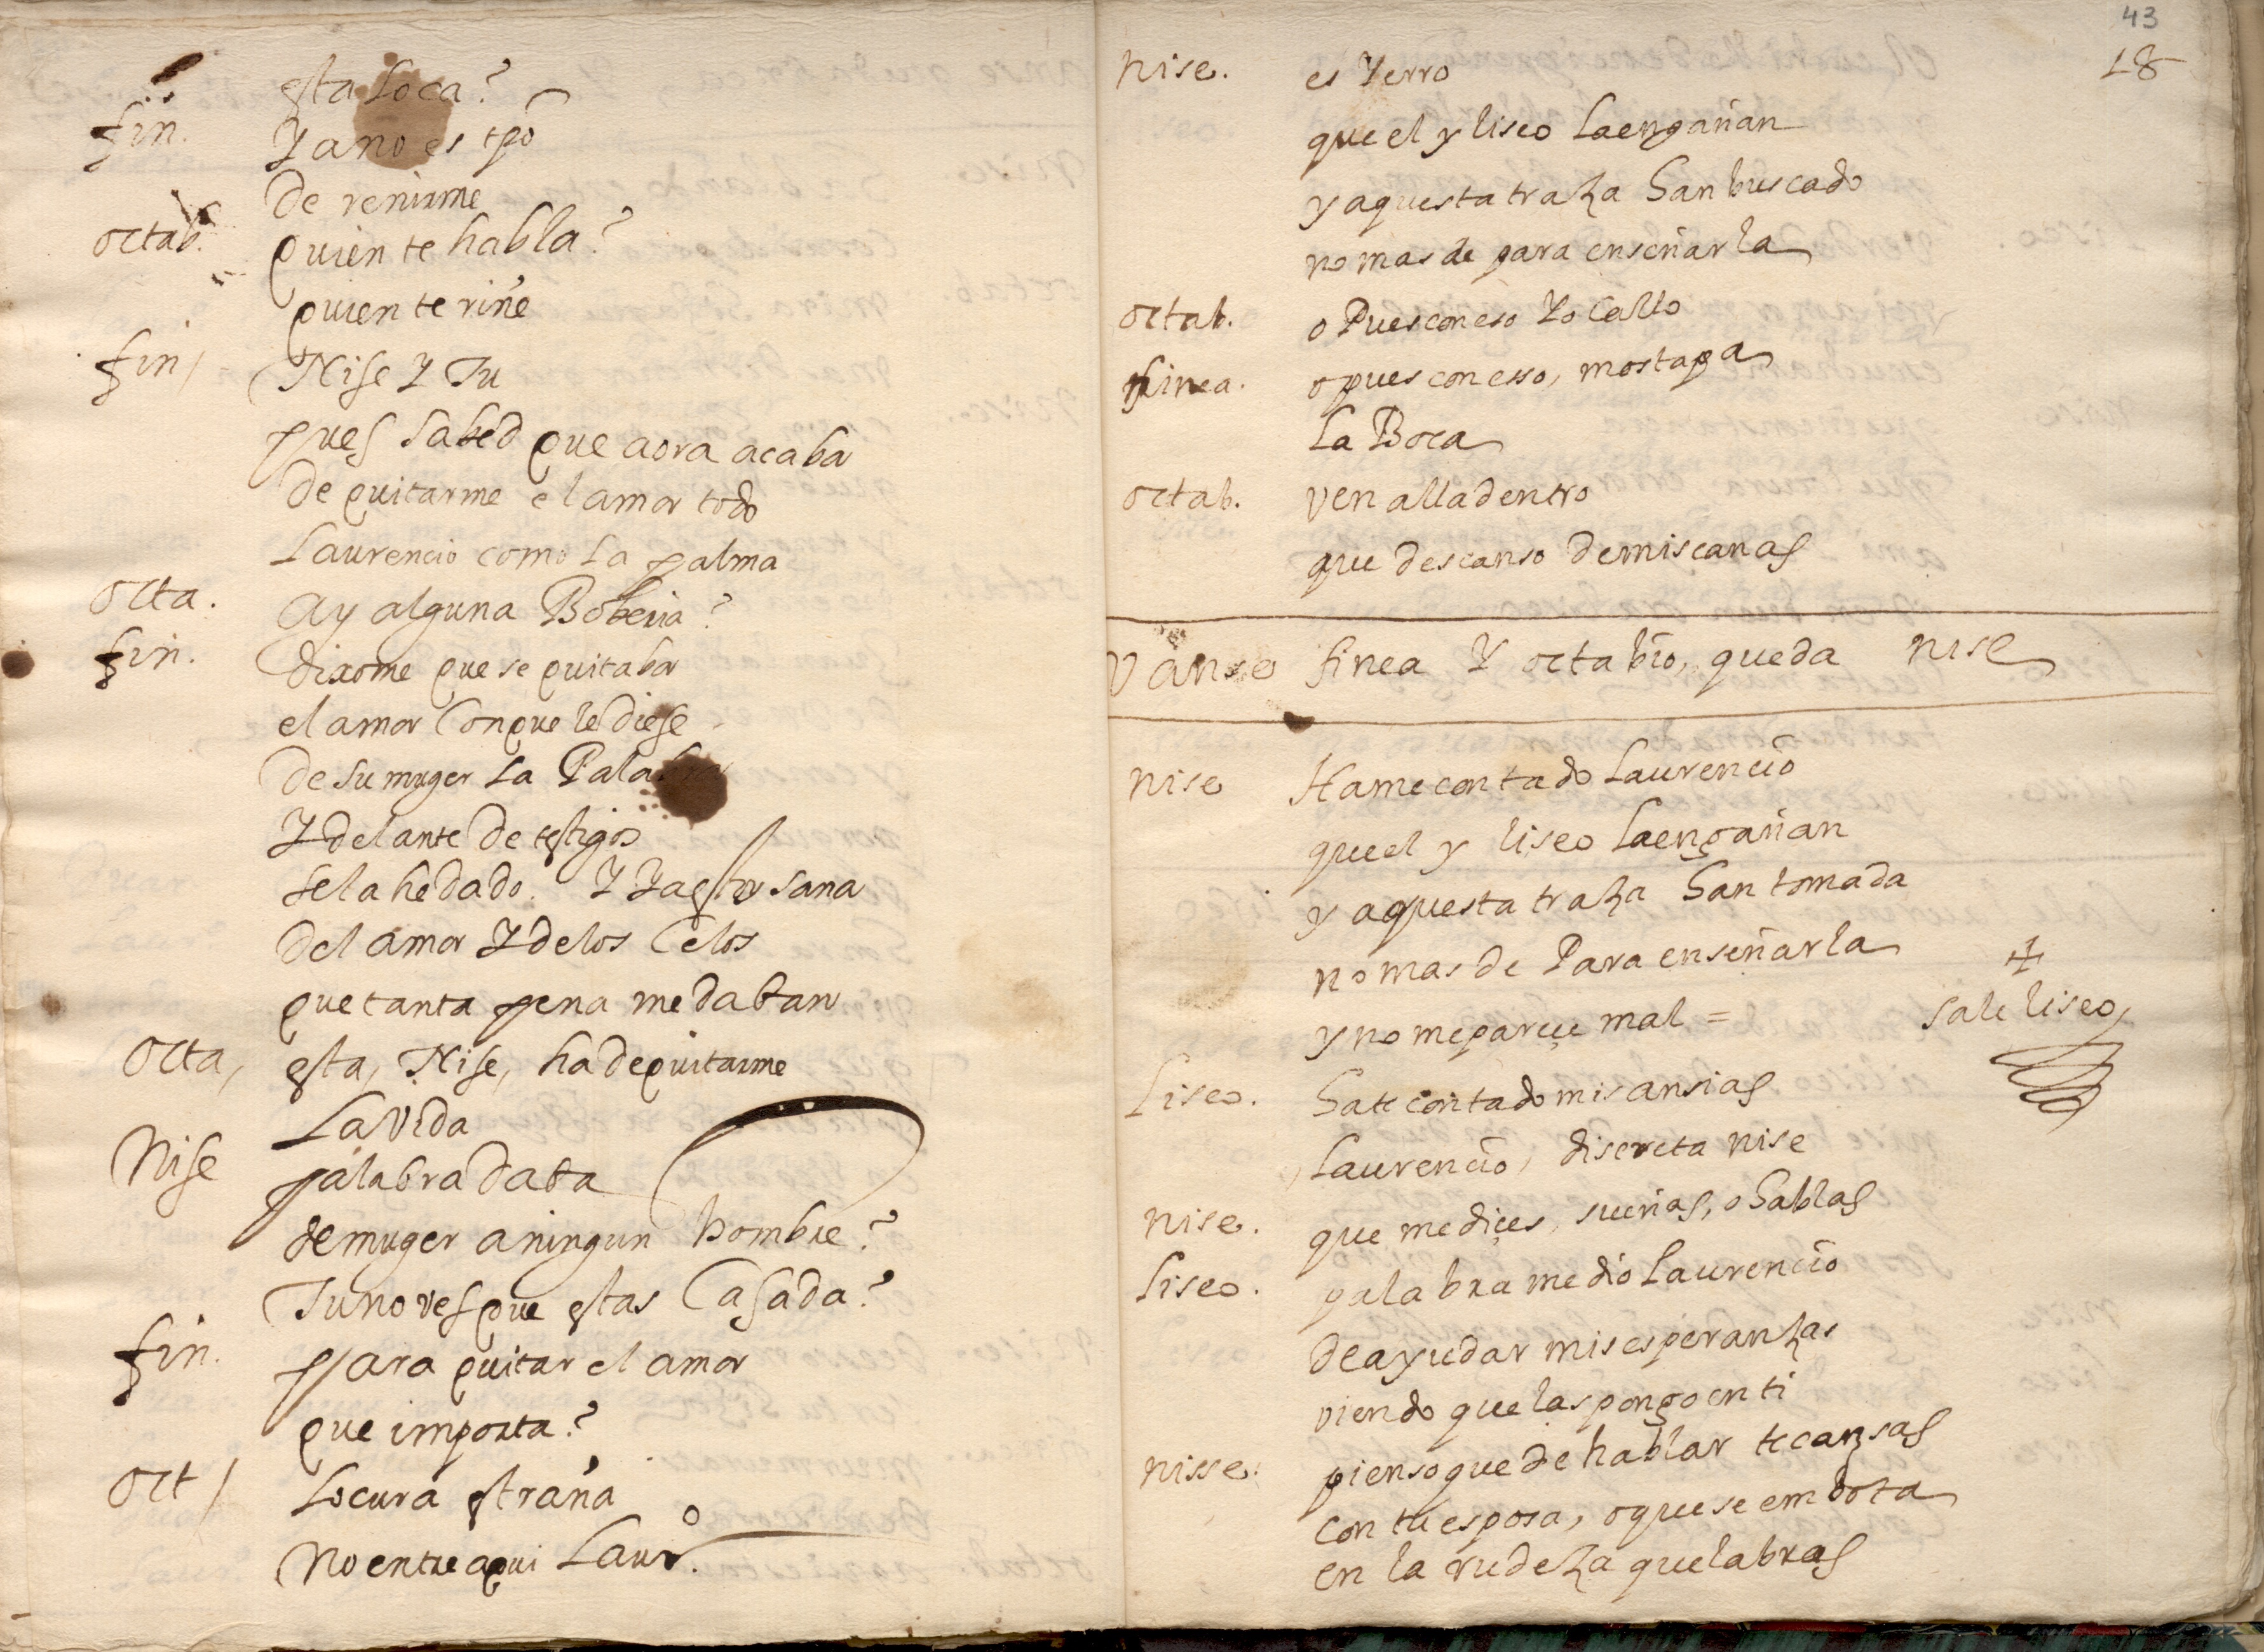 esta loca?
fin. Ya no es tpo
de reñirme
octab. quien te habla?
quien te riñe
fin / Nise Y Tu
pues sabed que aora acaba
de quitarme el amor todo
Laurencio como la palma
octa. ay alguna Boberia?
fin. dixome que se quitaba
el amor con que le diese
de su muger la Palabra
Y delante de testigos
se la he dado. Y Ya estoy sana
del amor Y de los Celos
que tanta pena me daban
octa, esta, Nise, ha de quitarme
la vida
Nise palabra dada
de muger a ningun hombre?
Tu no ves que estas Casada?
fin. para quitar el amor
que importa?
oct / Locura estraña
no entre aqui Laur.º
43
18
nise. es Yerro
que el y liseo la engañan
y aquesta traza han buscado
no mas de para enseñarla
octab. o Pues con eso Yo Callo
finea. o pues con esso, nos tapa
la Boca
octab. ven alla dentro
que descanso de mis canas
Vanse finea Y octabio, queda nise
nise Hame contado Laurencio
quel y liseo la engañan
y aquesta traza han tomada
no mas de Para enseñarla
y no me parece mal =
sale liseo
liseo. hate contado mis ansias
Laurencio, discreta nise
nise. que me diçes, sueñas, o hablas
liseo. palabra me dio Laurencio
de ayudar mis esperanzas
viendo que las pongo en ti
nisse. pienso que de hablar te cansas
con tu esposa, o que se embota
en la rudeza que labras